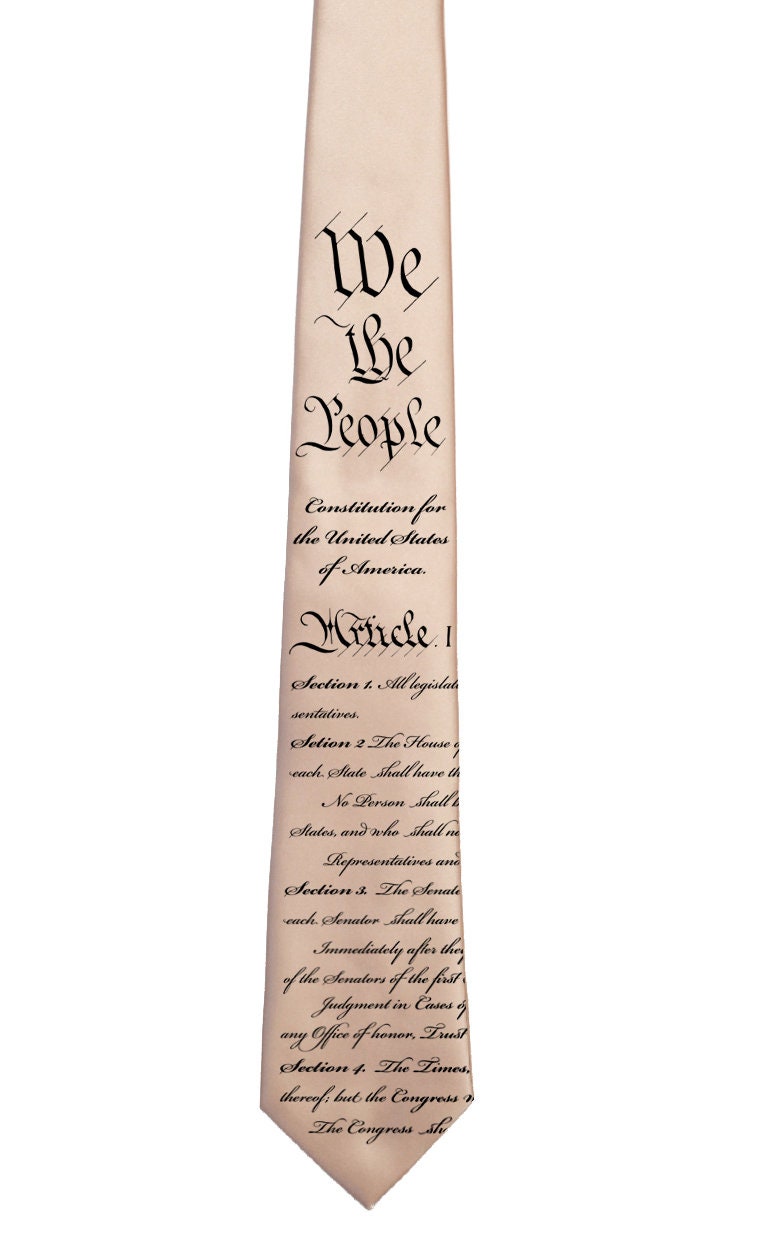 We
the
People
Constitution for
the United States
of America.
Article. I
Section 1. All legislat
sentatives.
Setion 2 The House o
each State shall have th
No Person shall b
States, and who shall no
Representatives and
Section 3. The Senate
each Senator shall have
Immediately after they
of the Senators of the first
Judgment in Cases of
any Office of honor, Trust
Section 4. The Times,
thereof; but the Congress
The Congress sh